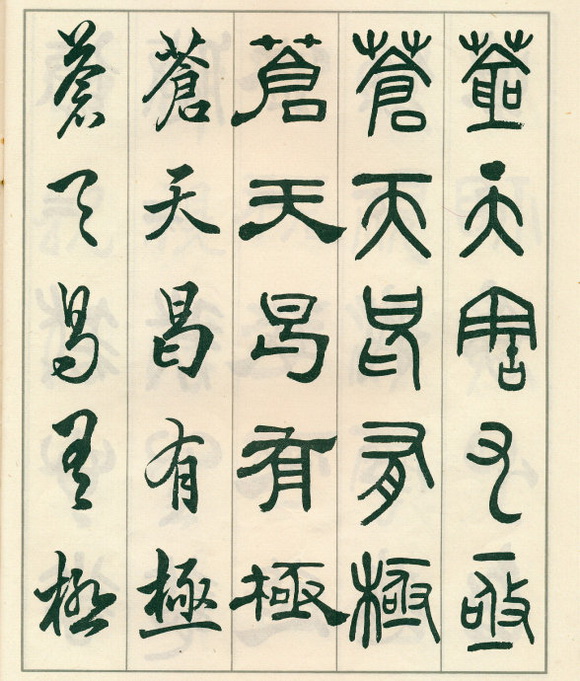 蒼天曷有極
蒼天曷有極
蒼天曷有極
蒼天曷有極
蒼天曷有極